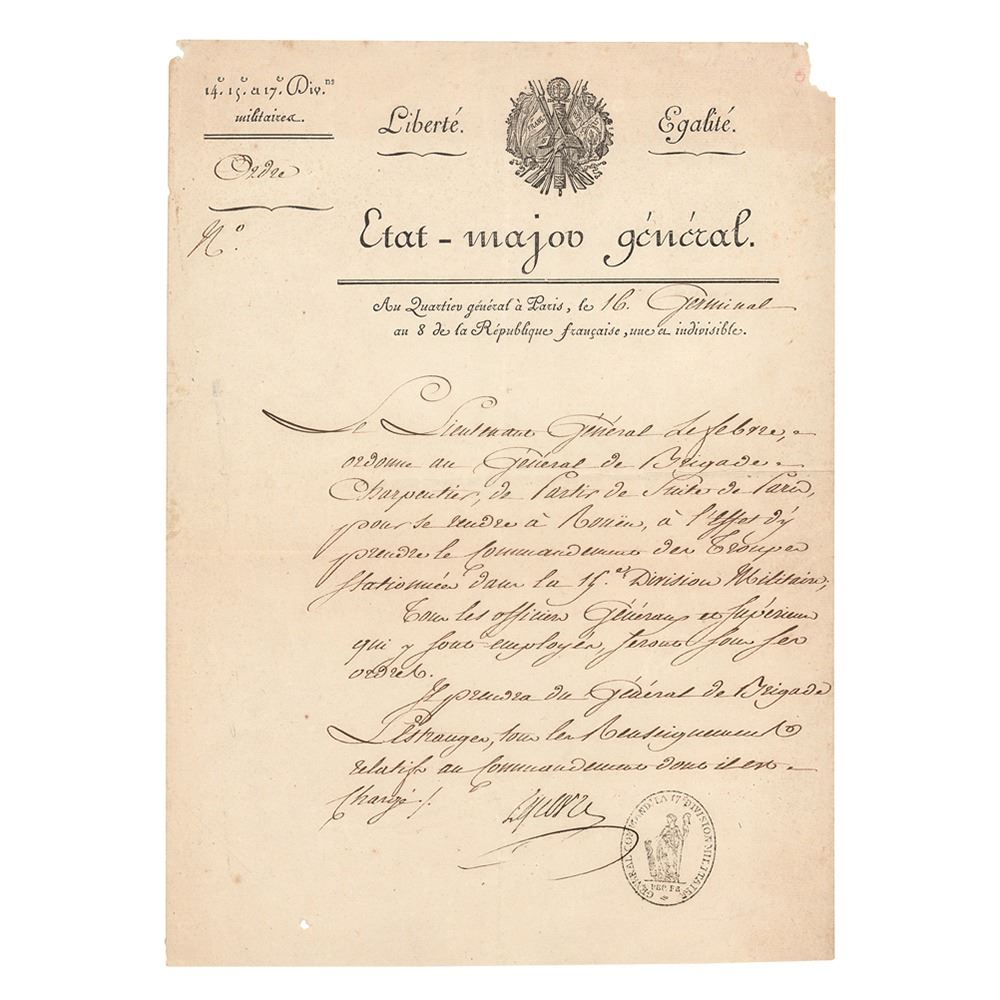 14e. 15e. et 17e. Div.ns
militaires.
Ordre
N.º
Liberté. Egalité.
Etat-major général.
Au Quartier général à Paris, le 16. Germinal
an 8 de la République française, une et indivisible.
Le Lieutenant Général Lefebvre,
ordonne au Général de Brigade
Charpentier, de Partir de Suite de Paris,
pour se rendre à Roüen, à l'effet d'y
prendre le Commandement des Troupes
Stationnées dans la 15.e Division Militaire;
Tous les officiers Généraux et Supérieurs
qui y sont employés, seront sous ses
ordres.
Il prendra du Général de Brigade
L'Estranger, tous les Renseignements
relatifs au Commandement dont il est
Chargé ./.
Lefebvre
GÉNÉRAL COMMAND.T LA 17.E DIVISION MILITAIRE
REP. FR